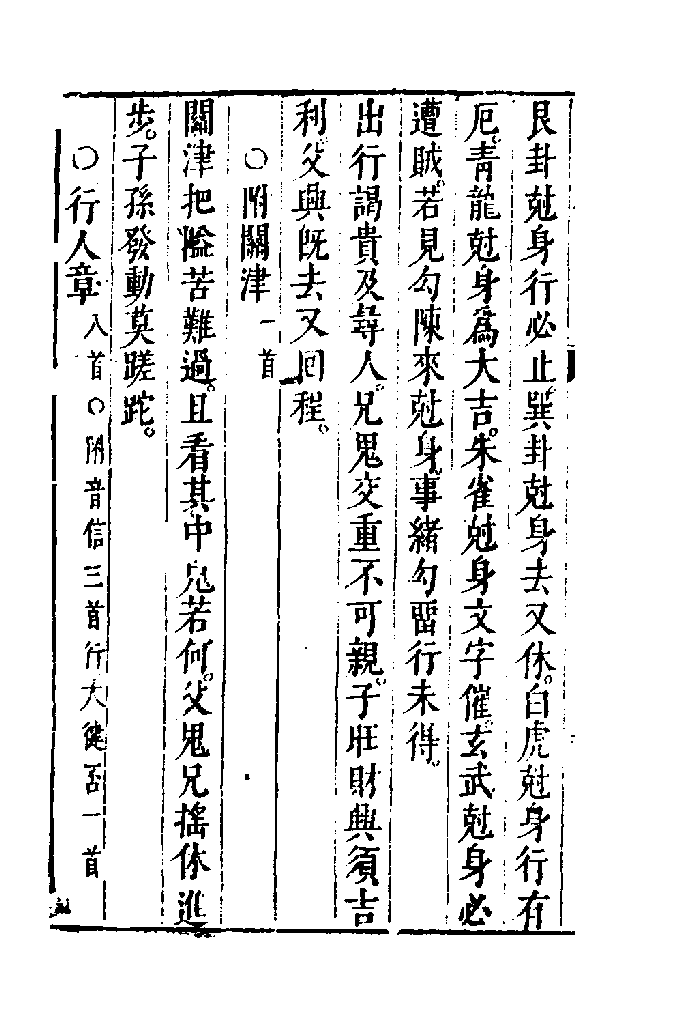 艮卦尅身行必止巽卦尅身去又休白虎尅身行有
厄青龍尅身爲大吉朱雀尅身文字催玄武尅身必
遭賊若見勾陳來尅身事緒勾畱行未得
出行謁貴及尋人兄鬼交重不可親子旺財興須吉
利父興既去又回程
○附關津一首
關津把隘苦難過且看其中鬼若何父鬼兄搖休進
步子孫發動莫蹉跎
○行人章八首○附音信三首行人健否一首